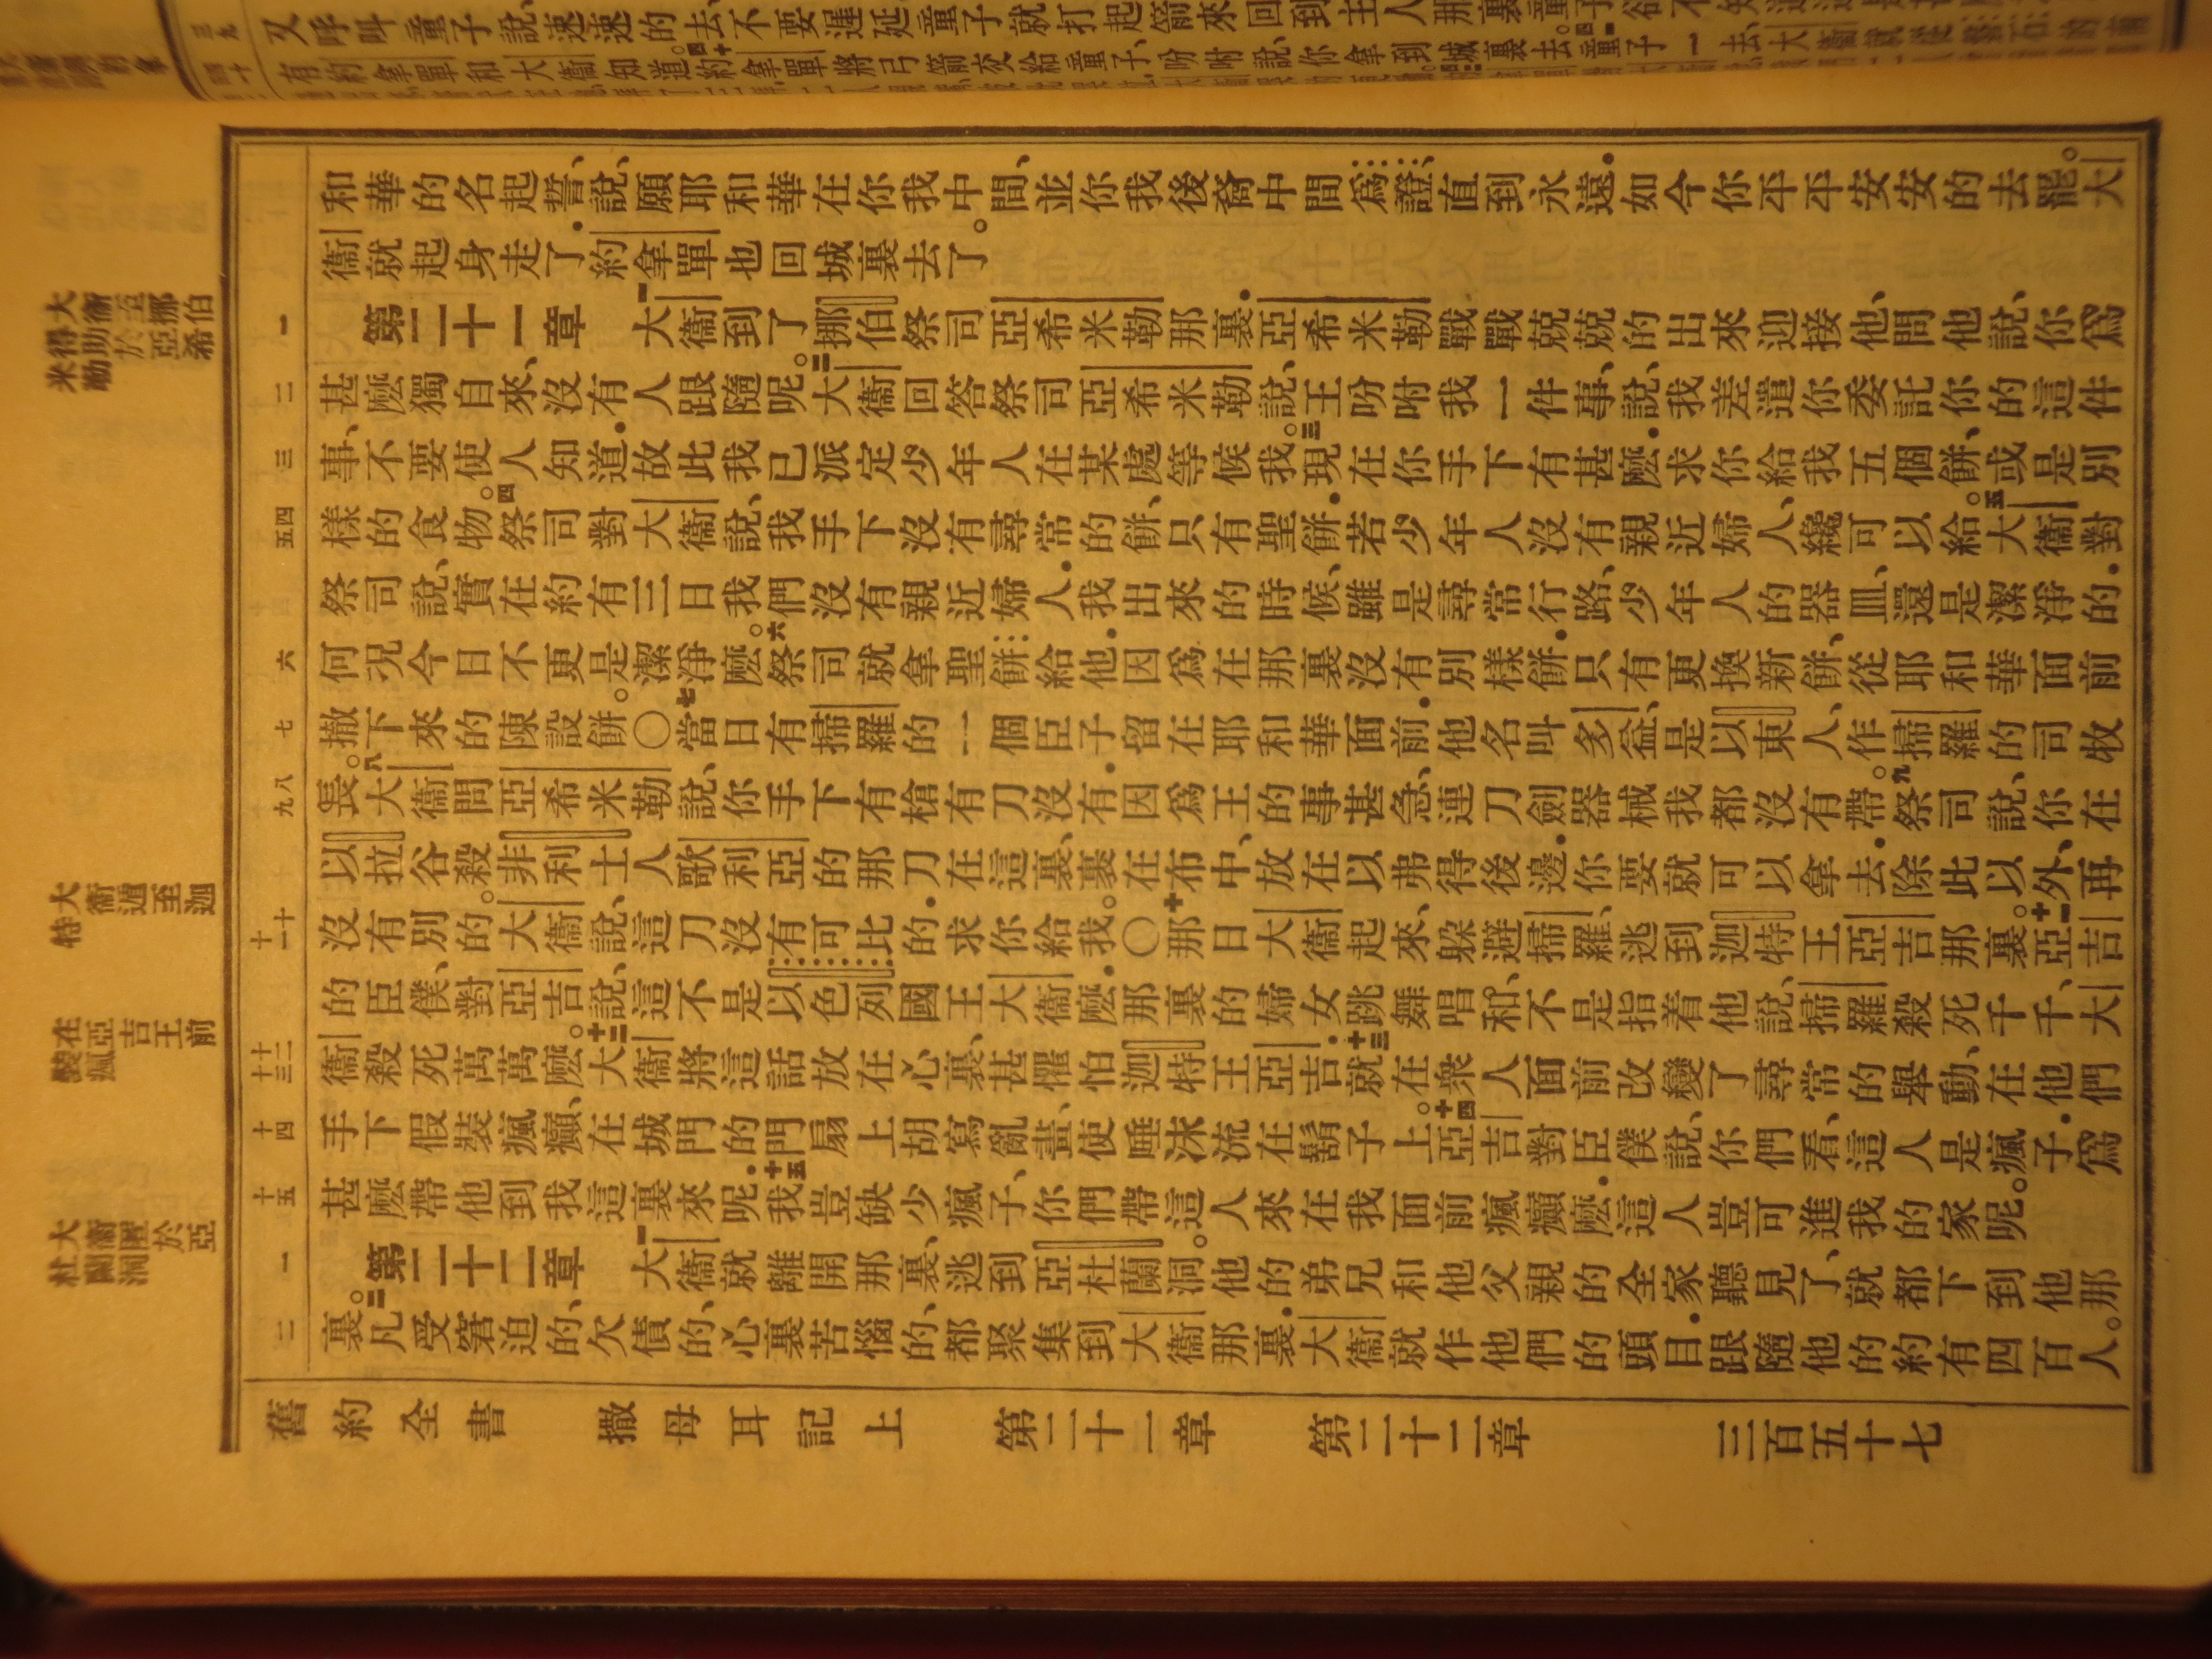 又呼叫童子說、速速的去、不要遲延、童子就打起箭來、回到主人那裏、
有約拿單和大衞知道。四十約拿單將弓箭交給童子、吩咐說、你拿到城裏去。四一童子一去、大衞
和華的名起誓、說、願耶和華在你我中間、並你我後裔中間爲證、直到永遠.如今你平平安安的去罷。大
衞就起身走了.約拿單也回城裏去了。
第二十一章 一大衞到了挪伯祭司亞希米勒那裏.亞希米勒戰戰兢兢的出來迎接他、問他說、你爲
甚麼獨自來、沒有人跟隨呢。二大衞回答祭司亞希米勒說、王吩咐我一件事、說、我差遣你委託你的這件
事、不要使人知道.故此我已派定少年人在某處等候我。三現在你手下有甚麼.求你給我五個餅、或是別
樣的食物。四祭司對大衞說、我手下沒有尋常的餅、只有聖餅.若少年人沒有親近婦人、纔可以給。五大衞對
祭司說、實在約有三日我們沒有親近婦人.我出來的時候、雖是尋常行路、少年人的器皿、還是潔淨的.
何況今日不更是潔淨麼。六祭司就拿聖餅給他.因爲在那裏沒有別樣餅.只有更換新餅、從耶和華面前
撤下來的陳設餅。〇七當日有掃羅的一個臣子留在耶和華面前.他名叫多益、是以東人、作掃羅的司牧
長。八大衞問亞希米勒說、你手下有槍有刀沒有.因爲王的事甚急、連刀劍器械我都沒有帶。九祭司說、你在
以拉谷殺非利士人歌利亞的那刀在這裏、裹在布中、放在以弗得後邊.你要就可以拿去.除此以外、再
沒有別的。大衞說、這刀沒有可比的.求你給我。〇十那日大衞起來、躲避掃羅、逃到迦特王亞吉那裏。十一亞吉
的臣僕、對亞吉說、這不是以色列國王大衞麼.那裏的婦女跳舞唱和、不是指着他說、掃羅殺死千千、大
衞殺死萬萬麼。十二大衞將這話放在心裏、甚懼怕迦特王亞吉.十三就在衆人面前改變了尋常的舉動、在他們
手下假裝瘋癲、在城門的門扇上胡寫亂畫、使唾沫流在鬍子上。十四亞吉對臣僕說、你們看、這人是瘋子.爲
甚麼帶他到我這裏來呢.十五我豈缺少瘋子、你們帶這人來在我面前瘋癲麼.這人豈可進我的家呢。
第二十二章 一大衞就離開那裏、逃到亞杜蘭洞。他的弟兄和他父親的全家聽見了、就都下到他那
裏。二凡受窘迫的、欠債的、心裏苦惱的、都聚集到大衞那裏.大衞就作他們的頭目.跟隨他的約有四百人。
舊約全書 撒母耳記上 第二十一章 第二十二章 三百五十七
大衞至挪伯
得助於亞希
米勒
大衞遁至迦
特
在亞吉王前
裝瘋
大衞匿於亞
杜蘭洞